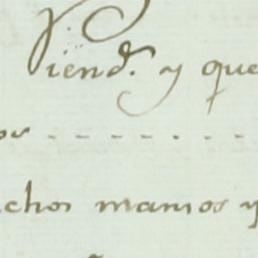 Viend.º y que
os - - - - - - -
chos manios y